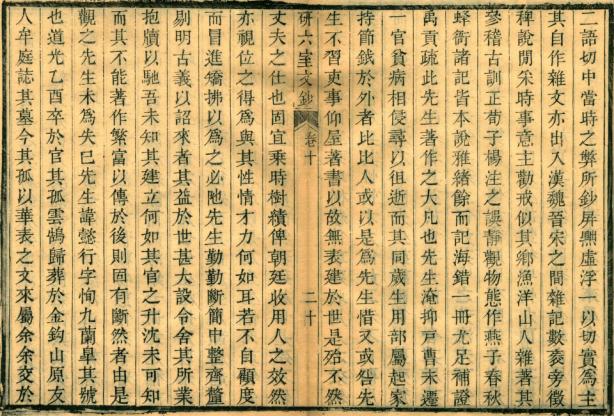 二語切中當時之弊所鈔屏黜虛浮一以切實為主
其自作雜文亦出入漢魏晉宋之間雜記數袠旁徵
稗說閒采時事意主勸戒似其鄉漁洋山人雜著其
參稽古訓正荀子楊注之誤靜觀物態作燕子春秋
蜂衙諸記皆本說雅緒餘而記海錯一冊尤足補證
禹貢疏此先生著作之大凡也先生淹抑戶曹未遷
一官貧病相侵尋以徂逝而其同歲生用部屬起家
持節鉞於外者比比人或以是為先生惜又或咎先
生不習吏事仰屋著書以故無表建於世是殆不然
研六室文鈔 卷十 二十
丈夫之仕也固宜乘時樹績俾朝廷收用人之效然
亦視位之得為與其性情才力何如耳若不自顧度
而冒進矯拂以為之必阤先生勤勤斷簡中整齊釐
剔明古義以詔來者其益於世甚大設令舍其所業
抱牘以馳吾未知其建立何如其官之升沈未可知
而其不能著作繁富以傳於後則固有斷然者由是
觀之先生未為失巳先生諱懿行字恂九蘭皋其號
也道光乙酉卒於官其孤雲鵠歸葬於金鈎山原友
人牟庭誌其墓今其孤以華表之文來屬余余交於